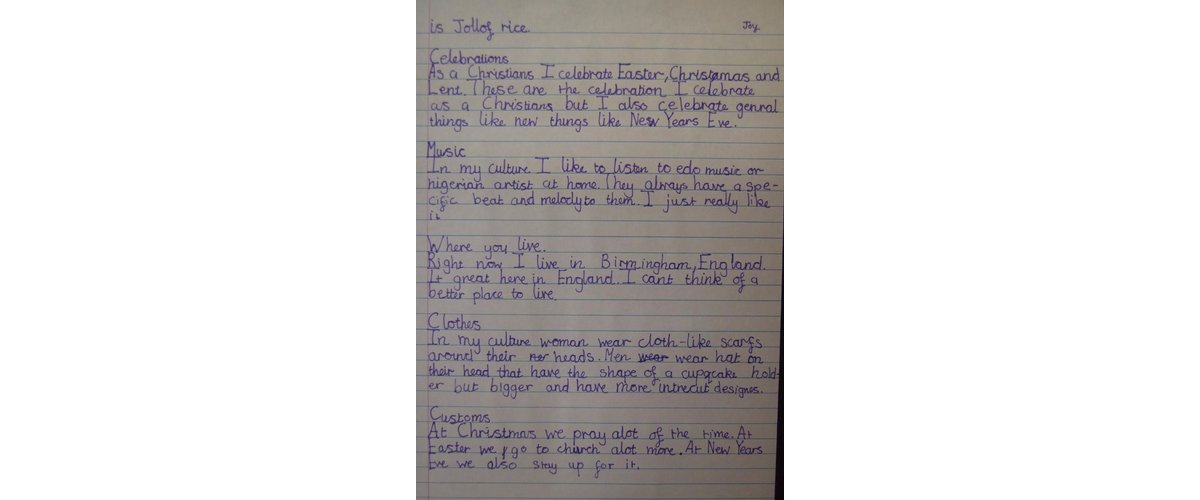 is Jollof rice.
Joy
Celebrations
As a Christians I celebrate Easter, Christamas and
Lent. These are the celebration I celebrate
as a Christians but I also celebrate genral
things like new things like New Years Eve.
Music
In my culture I like to listen to edo music or
nigerian artist at home. They always have a spe-
cific beat and melody to them. I just really like
it
Where you live.
Right now I live in Birmingham, England.
It great here in England. I cant think of a
better place to live.
Clothes
In my culture woman wear cloth-like scarfs
around their her heads. Men wear wear hat on
their head that have the shape of a cupgcake hold-
er but bigger and have more intrecut designes.
Customs
At Christmas we pray alot of the time. At
Easter we go to church alot more. At New Years
Eve we also stay up for it.